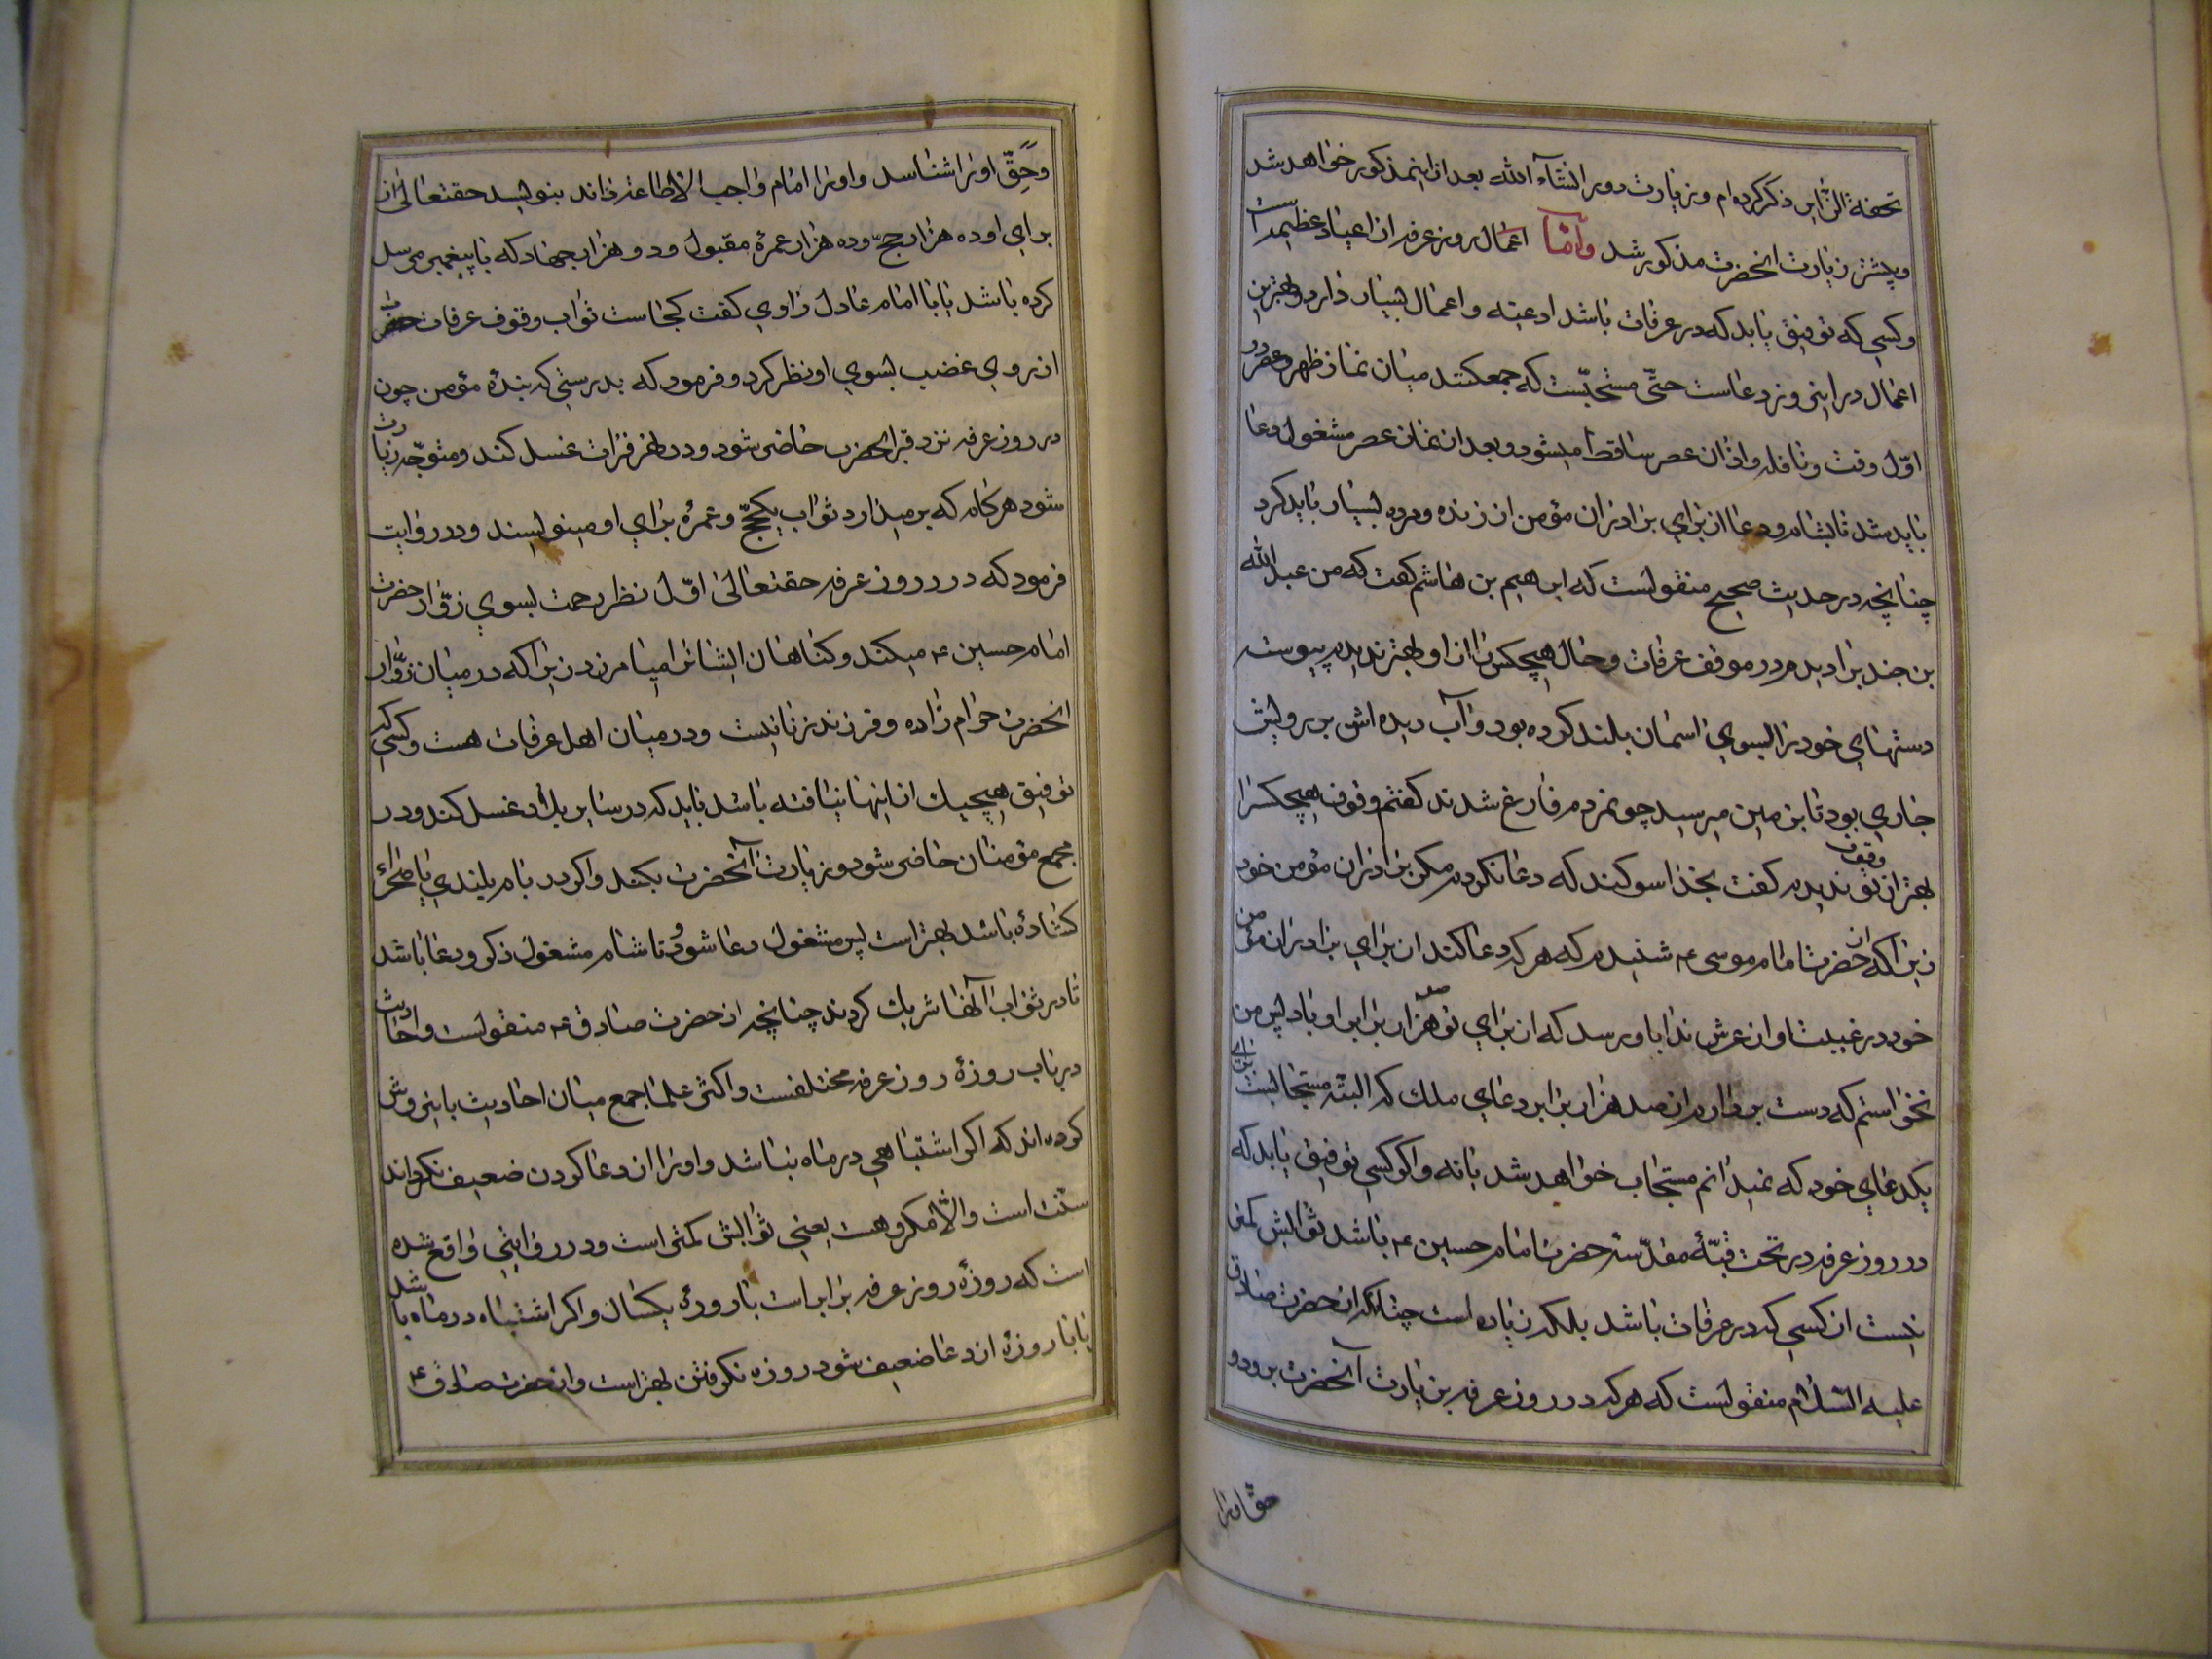 تحفة الزائر ذکر کرده‌ام و زیارت دور انشآء الله بعد از اینمذکور خواهد شد
و پیشتر زیارت انحضرت مذکور شد و امّا اعمال روز عرفه از اعیاد عظیمه است
و کسی که توفیق یابد که در عرفات باشد ادعیه و اعمال بسیار دارد و بهترین
اعمال در اینروز دعاست حتّی مستحبّست که جمعکنند میان نماز ظهر و عصر در
اوّل وقت و نافله و اذان عصر ساقط میشود و بعد از نماز عصر مشغول دعا
باید شد تا بشام و دعا از برای برادران مؤمن از زنده و مرده بسیار باید کرد
چنانچه در حدیث صحیح منقولست که ابراهیم بن هاشم گفت که من عبد الله
بن جندب را دیدم در موقف عرفات و حال هیچکس را از او بهتر ندیدم پیوسته
دستهای خود را بسوی اسمان بلند کرده بود و آب دیده اش بر رویش
جاری بود تا بزمین میرسید چو مردم فارغ شدند گفتم وقوف هیچکسرا
بهتر از وقوف تو ندیدم گفت بخدا سوکند که دعا نکردم مکر برادران مؤمن خود
زیرا که از حضرت امام موسی ع شنیدم که هر که دعا کند از برای برادران مؤمن
خود در غیبت او از عرش ندا باو رسد که از برای تو صد هزار برابر او باد پس من
نخواستم که دست بردارم از صد هزار برابر دعای ملك که البته مستجابست برای
یکدعای خود که نمیدانم مستجاب خواهد شد یا نه و اکر کسی توفیق یابد که
در روز عرفه در تحت قبّهٔ مقدّسه حضرت امام حسین ع باشد ثوابش کمتر
نیست از کسی که در عرفات باشد بلکه زیاده است چنانکه از حضرت صادق
علیه السّلام منقولست که هر که در روز عرفه بزیارت آنحضرت برود و
حق اورا
و حَقّ اورا شناسد و اورا امام واجب الاطاعة داند بنویسد حقتعالی از
برای او ده هزار حجّ و ده هزار عمرهٔ مقبول و دو هزار جهاد که با پیغمبر مرسل
کرده باشد یا با امام عادل راوی گفت کجاست ثواب وقوف عرفات حضرت
از روی غضب بسوی او نظر کرد و فرمود که بدرستی که بندهٔ مؤمن چون
در روز عرفه نزد قبر انحضرت حاضر شود و در نهر فرات غسل کند و متوجّه زیارت
شود هر کام که بر میدارد ثواب یکحجّ و عمرهٔ برای او مینویسند و در روایت
فرمود که در روز عرفه حقتعالی اوّل نظر رحمت بسوی زوّار حضرت
امام حسین ع میکند و کناهان ایشانرا میامرزد زیرا که در میان زوّار
انحضرت حرام زاده و فرزند زنا نیست و در میان اهل عرفات هست و کسی که
توفیق هیچیك از اینها نیافته باشد باید که در سایر بلاد غسل کند و در
مجمع مؤمنان حاضر شود و زیارت آنحضرت بکند و اکر در بام بلندی یا صحرای
کشادهٔ باشد بهتر است پس مشغول دعا شود تا شام مشغول ذکر و دعا باشد
تا در ثواب آنها شریك کردند چنانچه از حضرت صادق ع منقولست و احادیث
در باب روزهٔ روز عرفه مختلفست و اکثر علما جمع میان احادیث باینروش
کرده‌اند که اکر اشتباهی در ماه نباشد و اورا از دعا کردن ضعیف نکرداند
سنّت است و الّا مکروهست یعنی ثوابش کمتر است و در روایتی واقع شده
است که روزهٔ روز عرفه برابر است با روزهٔ یکسال و اکر اشتباه در ماه باشد
یا با روزه از دعا ضعیف شود روزه نکرفتن بهتر است و از حضرت صادق ع